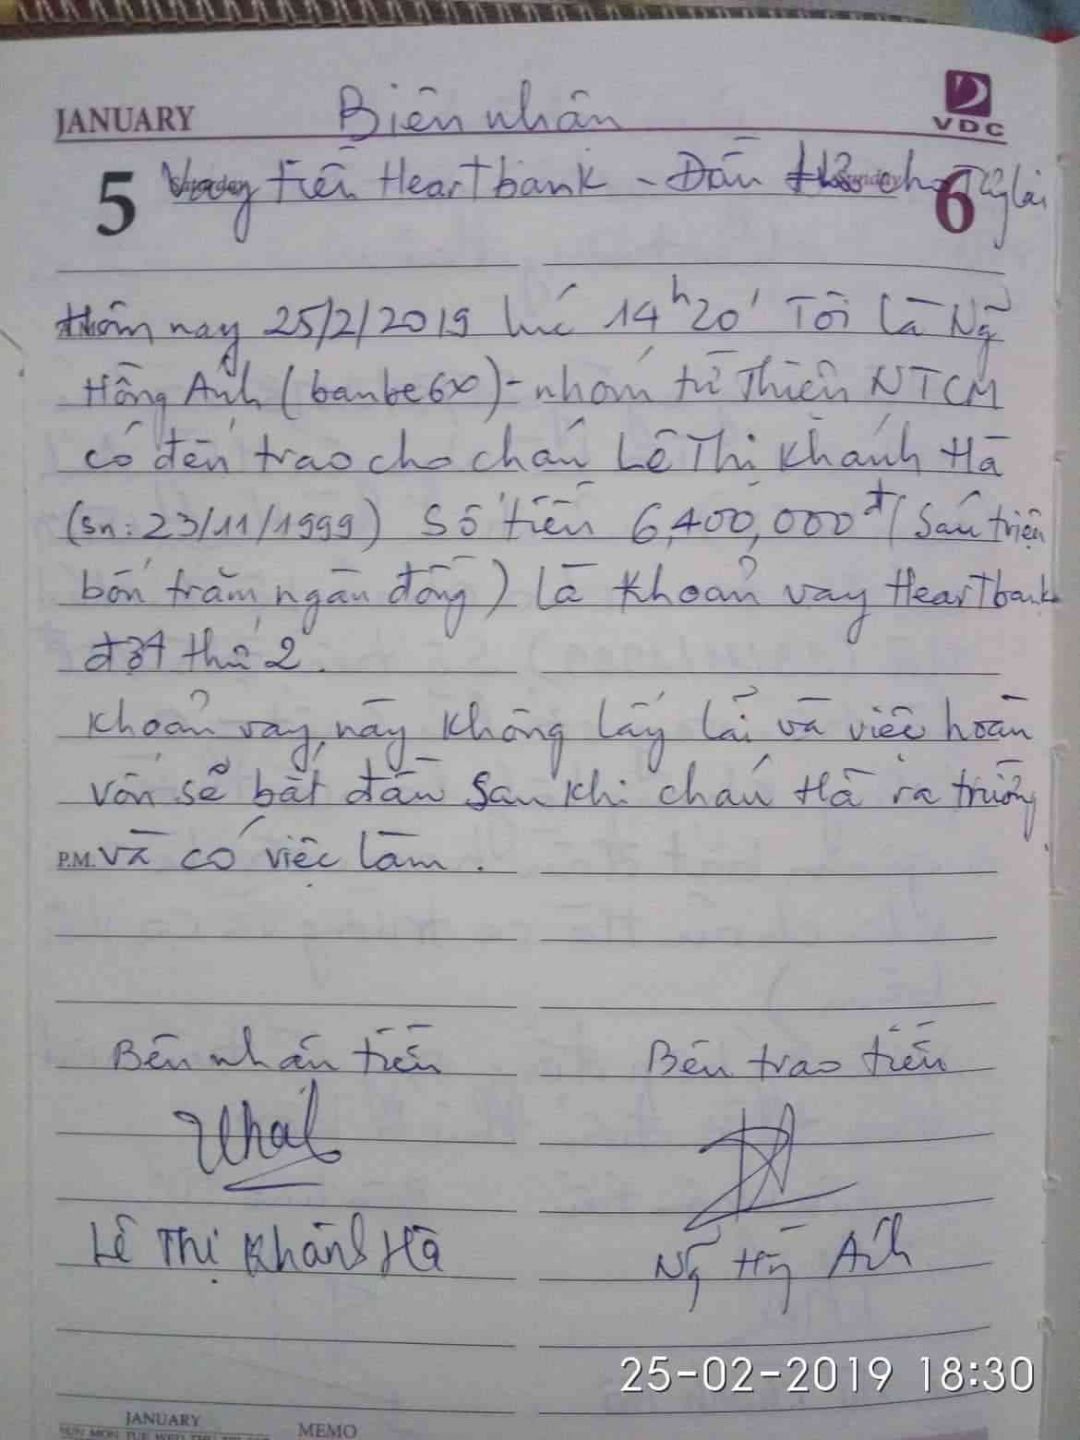 Biên nhận
JANUARY
VDC
5 Vay tiền Heartbank - Dán cho 6 lại
Hôm nay 25/2/2019 lúc 14h20' Tôi là Ng~
Hồng Ánh (banbe6x) - nhóm từ Thiện NTCM
có đến trao cho cháu Lê Thị Khánh Hà
(sn: 23/11/1999) Số tiền 6,400,000đ (Sáu triệu
bốn trăm, ngàn đồng) là khoản vay Heartbank
đợt thứ 2.
Khoản vay này không lấy lãi và việc hoàn
vốn sẽ bắt đầu sau khi cháu Hà ra trường
P.M. và có việc làm.
Bên nhận tiền Bên trao tiền
Lê Thị Khánh Hà Ng~ Hg Ánh
25-02-2019 18:30
JANUARY
SUN MON TUE WED THU
MEMO